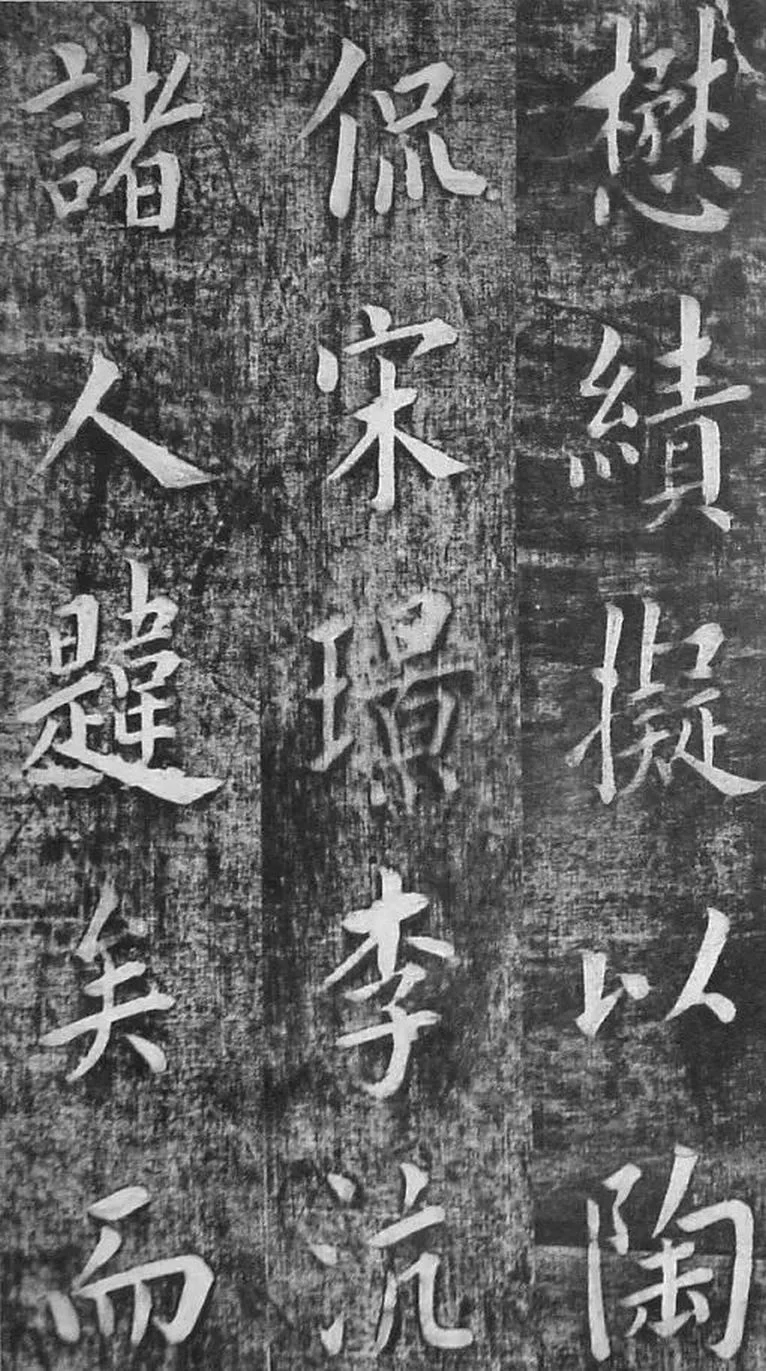 懋績擬以陶
侃宋璟李沆
諸人韙矣而